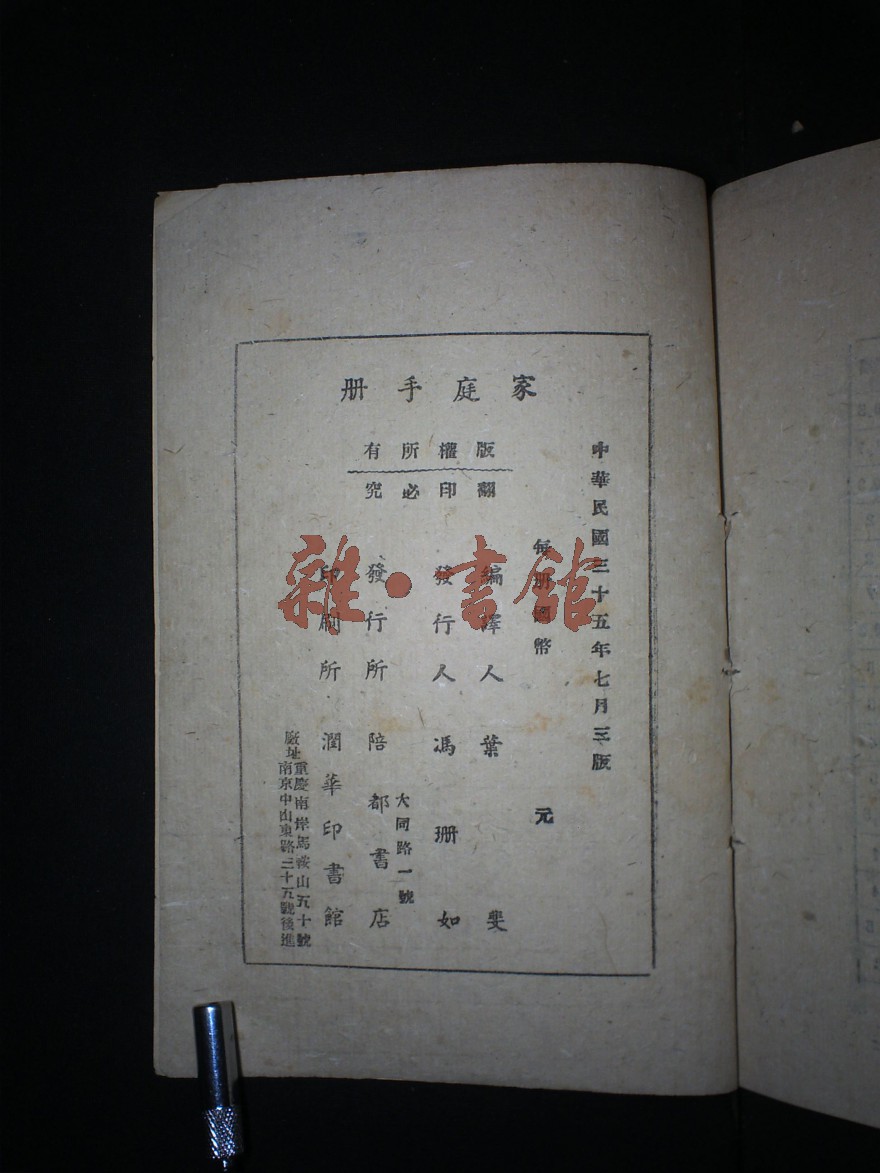 家庭手册
版權所有
翻印必究
中華民國三十五年七月三版
每册國幣 元
編譯人 葉斐
發行人 馮珊如
發行所 陪都書店
大同路一號
印刷所 潤華印書館
廠址重慶南岸馬鞍山五十號
南京中山東路三十五號後進
雜·書館